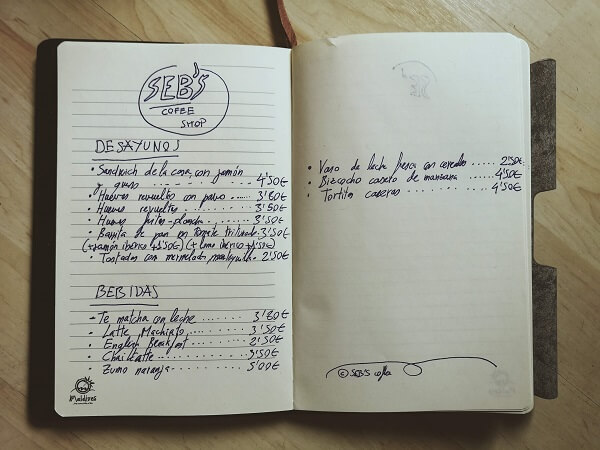 SEB'S
COFEE
SHOP
DESAYUNOS
• Sandwich de la casa, con jamón
y queso ........ 4'50€
• Huevos revueltos con pavo ..... 3'80€
• Huevos revueltos ........ 3'50€
• Huevos fritos-plancha ....... 3'50€
• de pan con tomate triturado. 3'50€
(+jamón ibérico +1'50€) (+lomo ibérico +1'50€)
• Tostadas con mermelada y mantequilla. 2'50€
BEBIDAS
- Te matcha con leche ....... 3'80€
- Latte Machiato ........ 3'50€
- English Breakfast ...... 2'50€
- Chai Latte ........ 3'50€
- Zumo naranja ....... 3'00€
Maldives
• Vaso de leche fresca con cereales ...... 2'50€
• Bizcocho casero de manzana ...... 4'50€
• Tortitas caseras ........ 4'50€
© SEB'S coffee